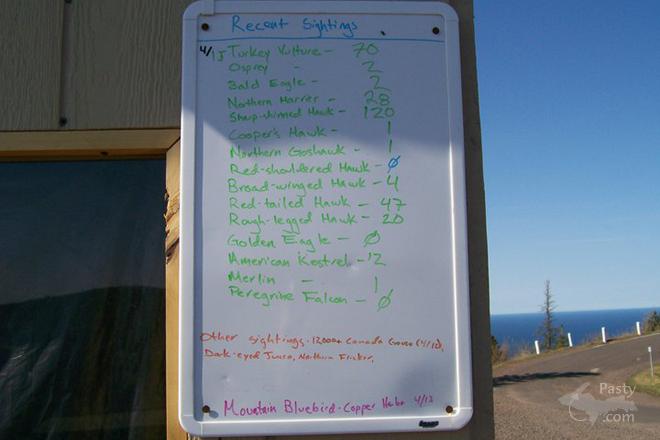 Recent Sightings
4/15 Turkey Vulture - 70
Osprey - 2
Bald Eagle - 2
Northern Harrier - 28
Sharp-shinned Hawk - 120
Cooper's Hawk - 1
Northern Goshawk - 1
Red-shouldered Hawk - Ø
Broad-winged Hawk - 4
Red-tailed Hawk - 47
Rough-legged Hawk - 20
Golden Eagle - Ø
American Kestrel - 12
Merlin - 1
Peregrine Falcon - Ø
Other sightings - 12000+ Canada Goose (4/12),
Dark-eyed Junco, Northern Flicker,
Mountain Bluebird - Copper Harbor 4/13
Pasty
.com